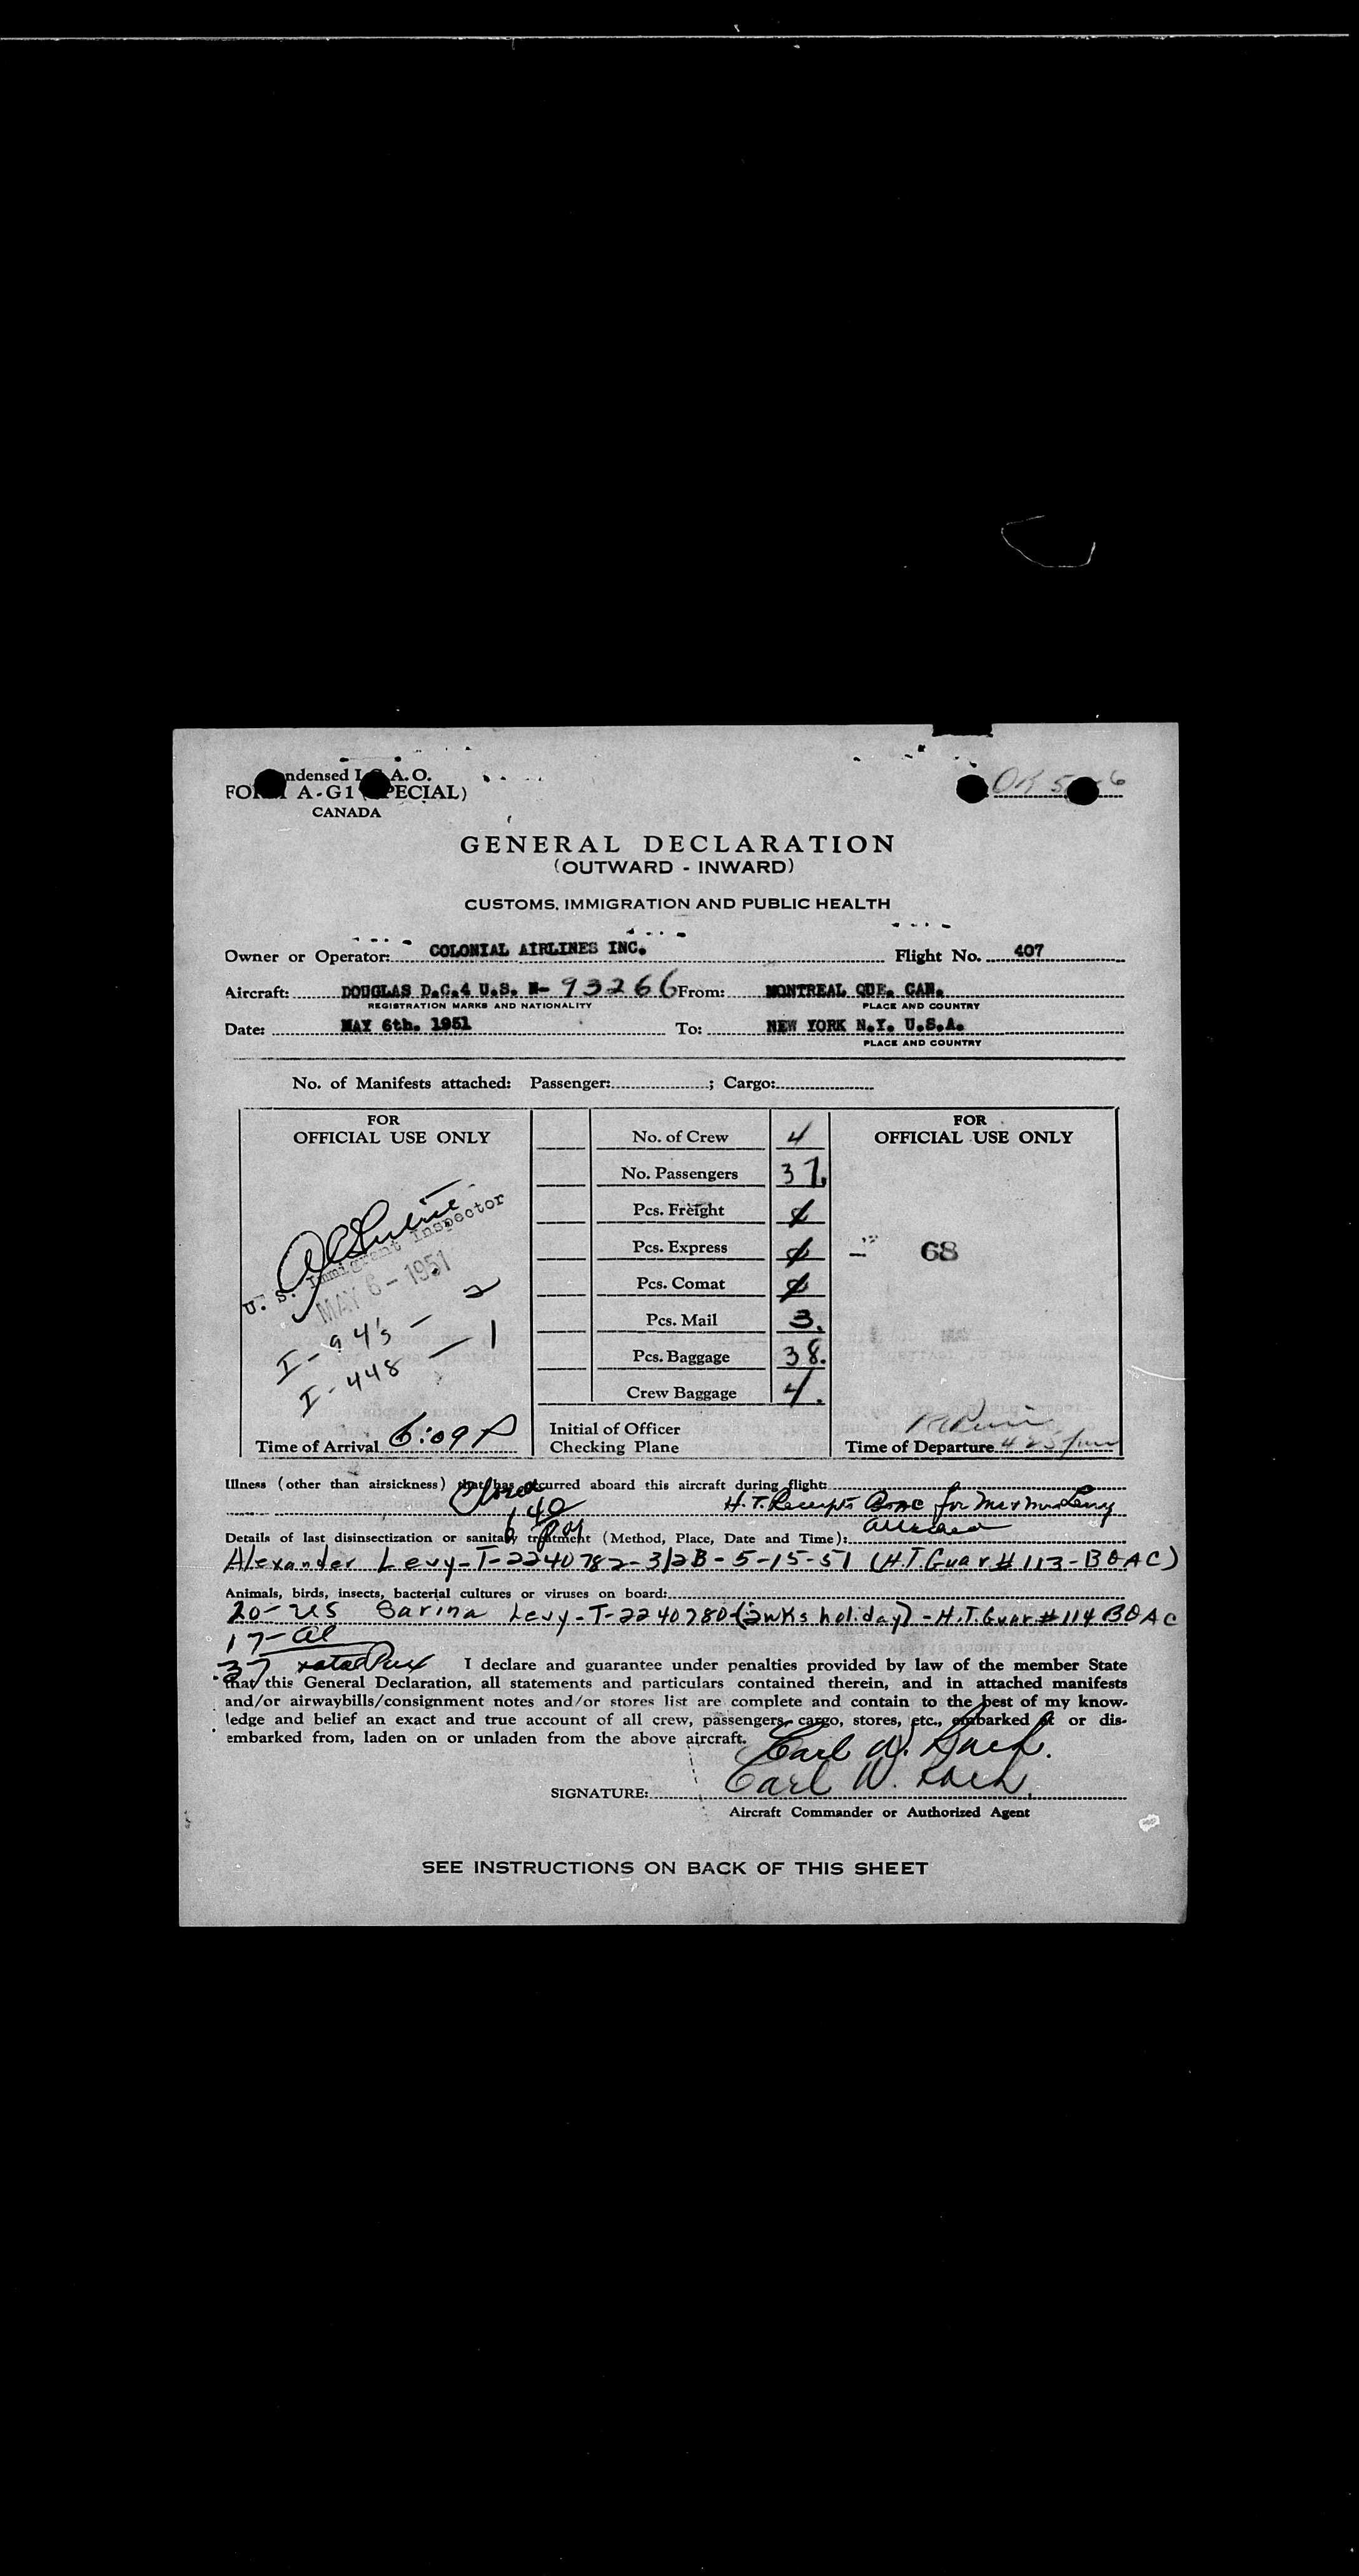 Condensed I.C.A.O.
FORM A-G1 (SPECIAL)
CANADA
GENERAL DECLARATION
(OUTWARD - INWARD)
CUSTOMS, IMMIGRATION AND PUBLIC HEALTH
Owner or Operator: COLONIAL AIRLINES INC. Flight No. 407
Aircraft: DOUGLAS D.C.4 U.S. N- 93266 From: MONTREAL QUE. CAN.
REGISTRATION MARKS AND NATIONALITY PLACE AND COUNTRY
Date: MAY 6th. 1951 To: NEW YORK N.Y. U.S.A.
PLACE AND COUNTRY
No. of Manifests attached: Passenger: ; Cargo:
FOR
OFFICIAL USE ONLY
U. S. Immigrant Inspector
MAY 6 - 1951
I-94's - 2
I-448 - 1
Time of Arrival 6:09 P
No. of Crew 4
No. Passengers 37.
Pcs. Freight
Pcs. Express
Pcs. Comat
Pcs. Mail 3.
Pcs. Baggage 38.
Crew Baggage 4.
Initial of Officer
Checking Plane
FOR
OFFICIAL USE ONLY
68
Time of Departure
Illness (other than airsickness) that has occurred aboard this aircraft during flight:
H.T. Receipts BOAC for Mr & Mrs Levy
attached
Details of last disinsectization or sanitary treatment (Method, Place, Date and Time):
Alexander Levy-T-2240782-3/2B-5-15-51 (H.T. Guar # 113-BOAC)
Animals, birds, insects, bacterial cultures or viruses on board:
20-US Sarina Levy-T-2240780-(2wks holiday)-H.T. Guar #114 BOAC
17-al
37 total Pax I declare and guarantee under penalties provided by law of the member State
that this General Declaration, all statements and particulars contained therein, and in attached manifests
and/or airwaybills/consignment notes and/or stores list are complete and contain to the best of my know-
ledge and belief an exact and true account of all crew, passengers, cargo, stores, etc., embarked at or dis-
embarked from, laden on or unladen from the above aircraft.
SIGNATURE: Carl W.
Aircraft Commander or Authorized Agent
SEE INSTRUCTIONS ON BACK OF THIS SHEET